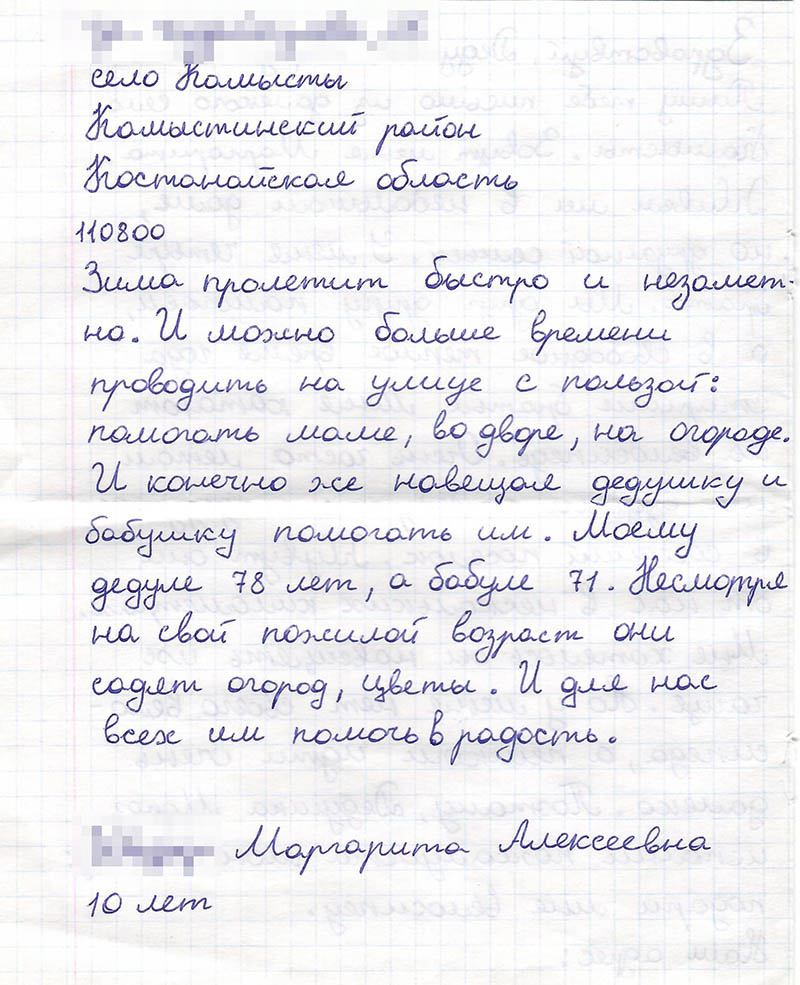 село Камысты
Камыстинский район
Костанайская область
110800
Зима пролетит быстро и незамет-
но. И можно больше времени
проводить на улице с пользой:
помогать маме, во дворе, на огороде.
И конечно же навещая дедушку и
бабушку помогать им. Моему
дедуле 78 лет, а бабуле 71. Несмотря
на свой пожилой возраст они
садят огород, цветы. И для нас
всех им помочь в радость.
Маргарита Алексеевна
10 лет